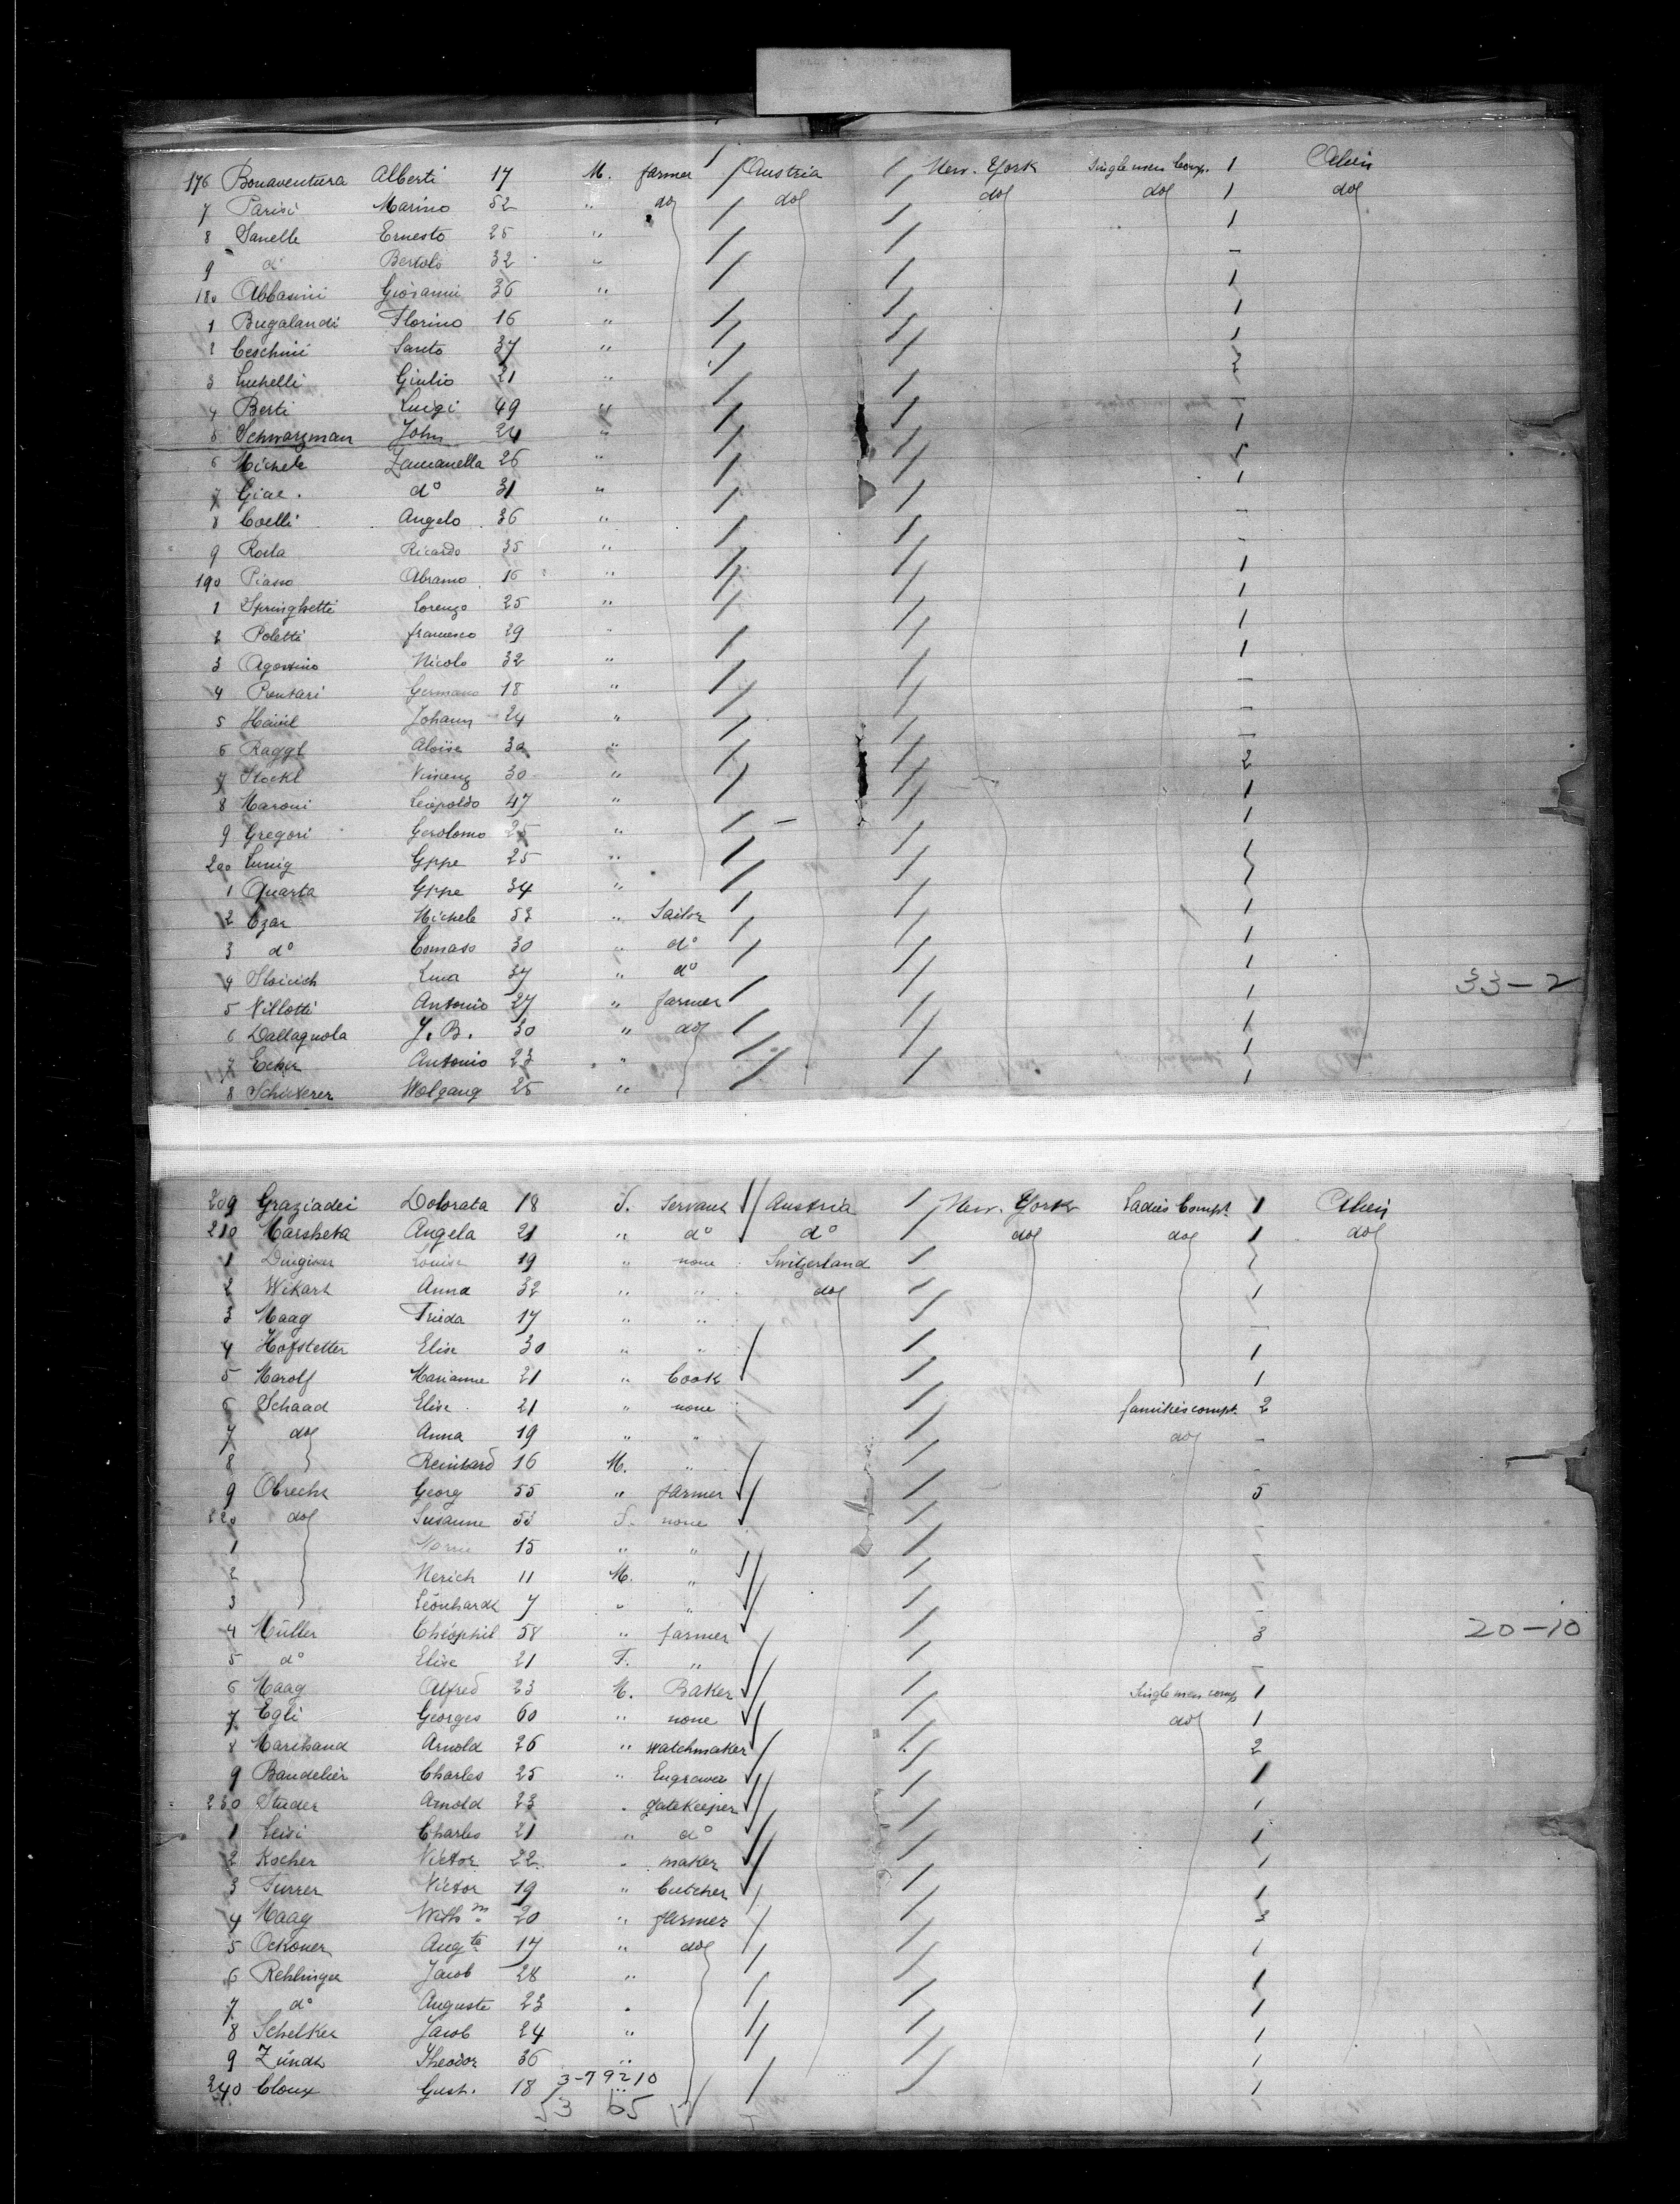 176 Bonaventura Alberti 17 M. farmer Austria New-York Single men Comp. 1 Alien
7 Parisi Marino 52 " do do do do 1 do
8 Sanelle Ernesto 25 " 1
9 do Bertolo 32 " -
180 Abbasini Giovanni 36 " 1
1 Bugalandi Florino 16 " 1
2 Ceschini Santo 37 " 1
3 Luchelli Giulio 21 " 2
4 Berti Luigi 49 " -
5 Schwarzman John 24 " 1
6 Michele Zamanella 26 " 1
7 Giac. do 31 " 1
8 Coelli Angelo 36 " -
9 Rosla Ricardo 35 " -
190 Piasso Abramo 16 " 1
1 Springhetti Lorenzo 25 " 1
2 Poletti francesco 29 " 1
3 Agostino Nicolo 32 " 1
4 Pontari Germano 18 " -
5 Johann 24 " -
6 Raggl Aloise 30 " -
7 Stockl Vincenz 30 " 2
8 Maroni Leopoldo 47 " 1
9 Gregori Gerolomo 25 " 1
200 Gppe 25 " 1
1 Quarta Gppe 34 "
2 Czar Michele 53 " Sailor 1
3 do Comaso 30 " do 1
4 Luca 37 " do 1
5 Villotti Antonio 27 " farmer 1 33-2
6 Dallagnola J. B. 30 " do 1
7 Ecker Antonio 23 " 1
8 Schuterer Wolgang 25 " 1
209 Graziadei Dolorata 18 F. Servant Austria New-York Ladies Compt. 1 Alien
210 Marsheta Angela 21 " do do do do 1 do
1 Louise 19 " none Switzerland 1
2 Wikart Anna 32 " " do 1
3 Maag Frieda 17 " " -
4 Hofstetter Elise 30 " " 1
5 Marolf Marianne 21 " Cook 1
6 Schaad Elise 21 " none families compt. 2
7 do Anna 19 " " do -
8 Reinhard 16 M. " -
9 Obrecht Georg 55 " farmer 5
220 do Susanne 53 F. none -
1 15 " " -
2 Nerich 11 M. " -
3 Leonhardt 7 " " -
4 Müller Théophil 58 " farmer 3 20-10
5 do Elise 21 F. " -
6 Maag Alfred 23 M. Baker Single men comp 1
7 Egli Georges 60 " none do 1
8 Marchand Arnold 26 " watchmaker 2
9 Bandelier Charles 25 " Engraver 1
230 Studer Arnold 23 " gatekeeper 1
1 Leisi Charles 21 " do 1
2 Kocher Victor 22 " maker 1
3 Furrer Victor 19 " Cutcher 1
4 Maag Wilh.m 20 " farmer 3
5 Ockoner Aug.te 17 " do 1
6 Rehlinger Jacob 28 " 1
7 do Auguste 23 " 1
8 Schelker Jacob 24 " 1
9 Zündt Theodor 36 " 1
240 Cloux Gust. 18 " 1
3-79210
53 65